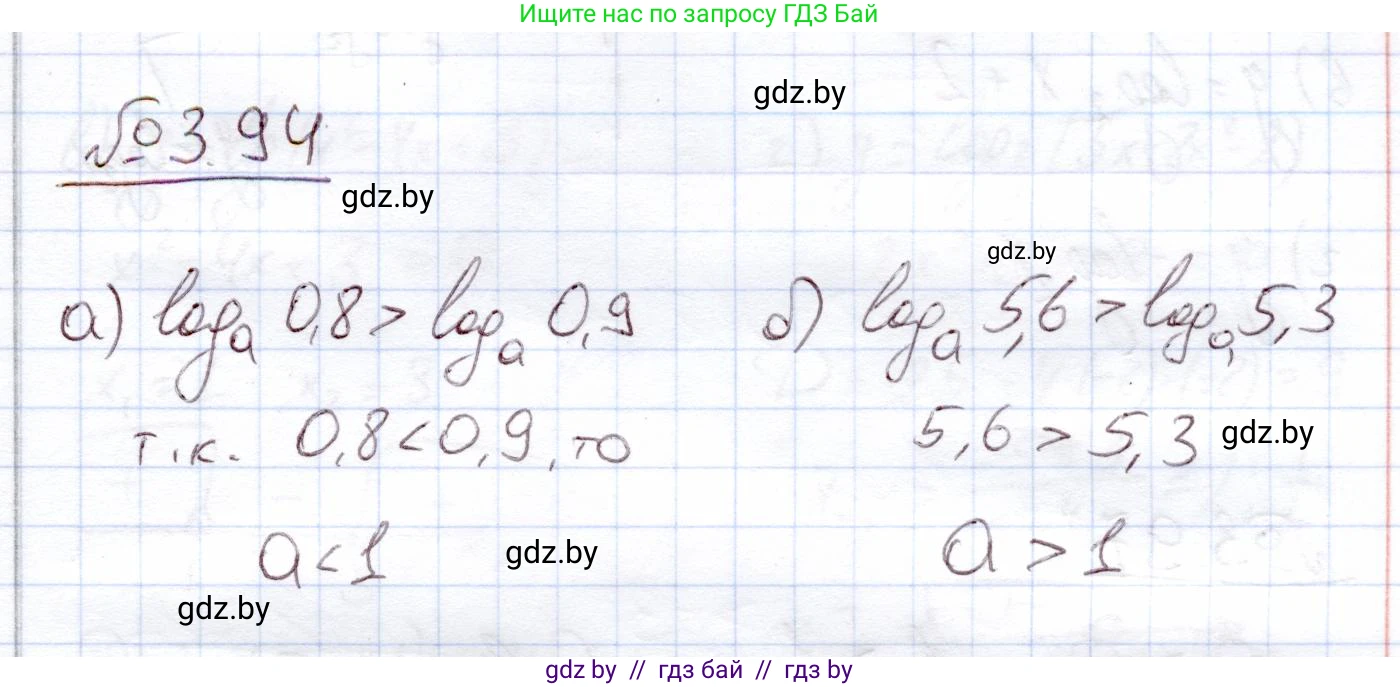 Ищите нас по запросу ГДЗ Бай
gdz.by
№ 3.94
gdz.by
gdz.by
а) logₐ 0,8 > logₐ 0,9
б) logₐ 5,6 > logₐ 5,3
т.к. 0,8 < 0,9, то
5,6 > 5,3
gdz.by
a < 1
gdz.by
a > 1
gdz.by
gdz by // гдз бай // гдз by